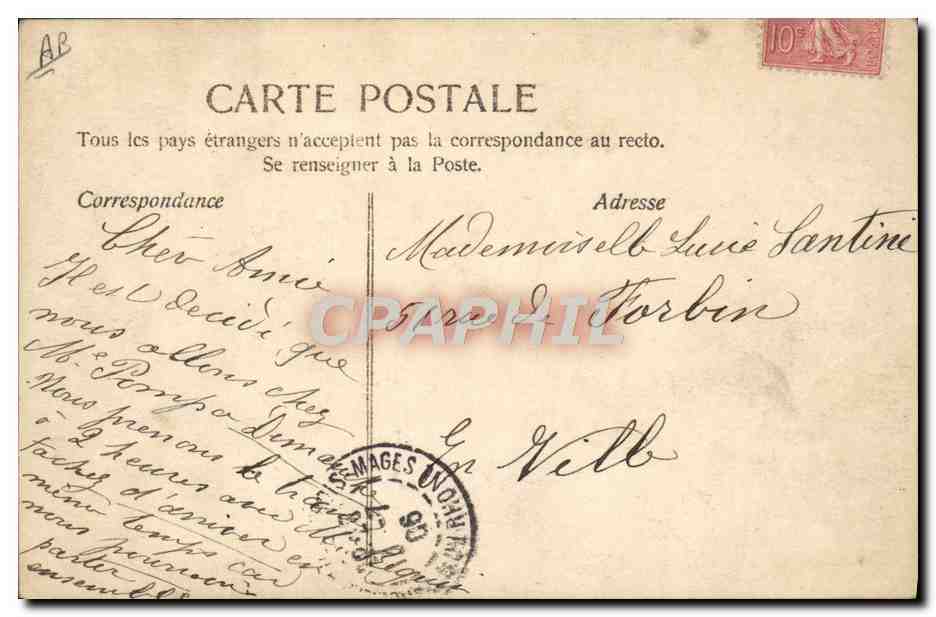 AB
10c
CARTE POSTALE
Tous les pays étrangers n'acceptent pas la correspondance au recto.
Se renseigner à la Poste.
Correspondance
Chèr Amie
Il est décidé que
nous allons chez
Me Pompa Dimanche
Nous prenons le train
à 2 heures au
Tachez d'arriver en
même temps car
nous pourrons
parler
ensemble
Adresse
Mademoiselle Lucie Santini
51 rue de Forbin
En Ville
MAGES (N
RHONE
06
CPAPHIL